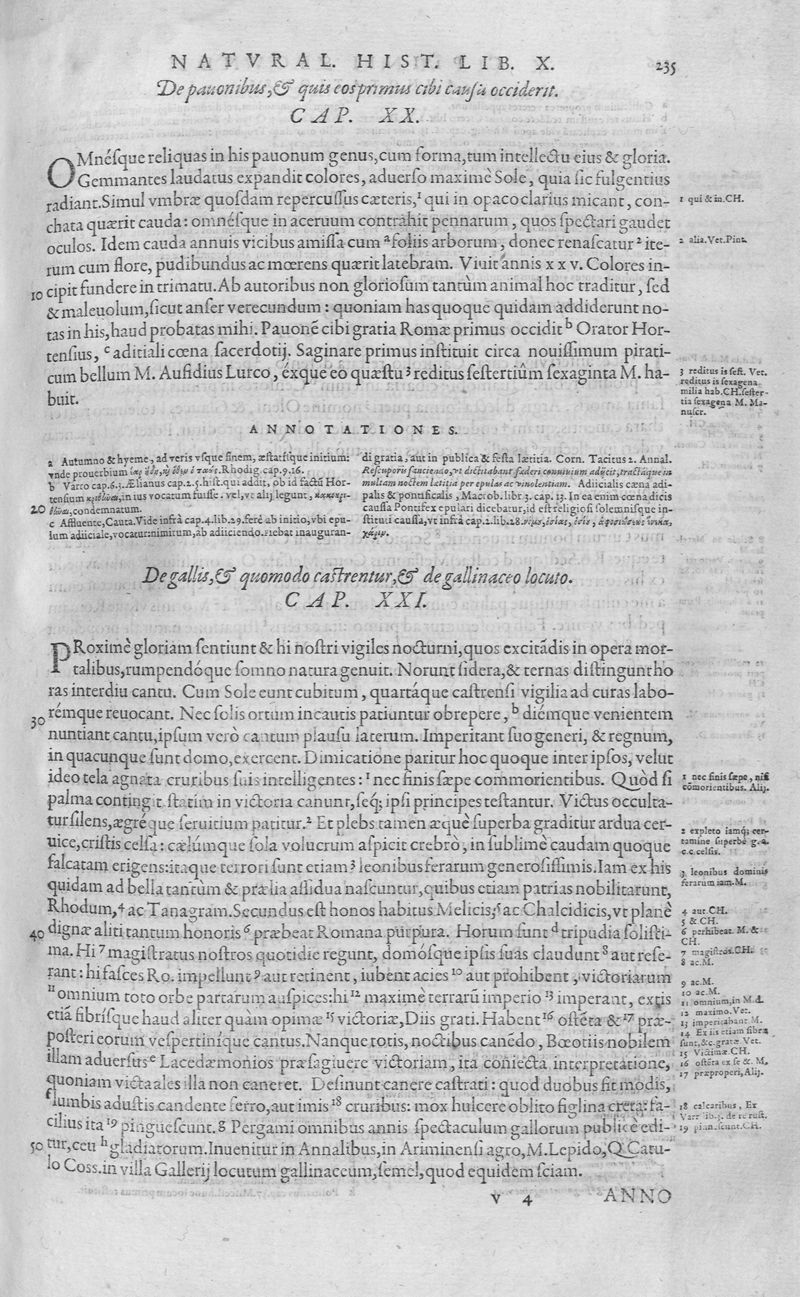 NATVRAL. HIST. LIB. X. 235
De pauonibus, & quis eos primus cibi causa occiderit.
CAP. XX.
OMnésque reliquas in his pauonum genus, cum forma, tum intellectu eius & gloria.
Gemmantes laudatus expandit colores, aduerso maximè Sole, quia sic fulgentius
radiant. Simul vmbræ quosdam repercussus cæteris,¹ qui in opaco clarius micant, con-
chata quærit cauda: omnésque in aceruum contrahit pennarum, quos spectari gaudet
oculos. Idem cauda annuis vicibus amissa cum ᵃ foliis arborum, donec renascatur ² ite-
rum cum flore, pudibundus ac mœrens quærit latebram. Viuit annis xxv. Colores in-
10 cipit fundere in trimatu. Ab autoribus non gloriosum tantùm animal hoc traditur, sed
& maleuolum, sicut anser verecundum: quoniam has quoque quidam addiderunt no-
tas in his, haud probatas mihi. Pauonē cibi gratia Romæ primus occidit ᵇ Orator Hor-
tensius, ᶜ aditiali cœna sacerdotij. Saginare primus instituit circa nouissimum pirati-
cum bellum M. Aufidius Lurco, éxque eo quæstu ³ reditus sestertiûm sexaginta M. ha-
buit.
1 qui & in. CH.
2 alia. Vet. Pint.
3 reditus is sest. Vet.
reditus is sexagena
milia hab. CH. sester-
tia sexagena M. Ma-
nuscr.
ANNOTATIONES.
a Autumno & hyeme, ad veris vsque finem, æstatísque initium:
vnde prouerbium Rhodig. cap. 9. 16.
b Varro cap. 6. 3. Ælianus cap. 2. 5. hist. qui addit, ob id factū Hor-
tensium in ius vocatum fuisse. vel, vt alij legunt,
20 condemnatum.
c Affluente, Cauta. Vide infrà cap. 4. lib. 29. ferè ab initio, vbi epu-
lum adiiciale, vocatur: nimirum, ab adiiciendo. Fiebat inauguran-
di gratia, aut in publica & festa lætitia. Corn. Tacitus 2. Annal.
Rescuporis sanciendo, vt dictitabant, fœderi conuiuium adiicit, tractáque in
multam noctem lætitia per epulas ac vinolentiam. Adiicialis cœna adi-
palis & pontificalis, Macrob. libr. 3. cap. 13. In ea enim cœna dicis
caussa Pontifex epulari dicebatur, id est religiosi solemnísque in-
stituti caussa, vt infrà cap. 2. lib. 28.
De gallis, & quomodo castrentur, & de gallinaceo locuto.
CAP. XXI.
PRoximè gloriam sentiunt & hi nostri vigiles nocturni, quos excitādis in opera mor-
talibus, rumpendóque somno natura genuit. Norunt sidera, & ternas distinguunt ho
ras interdiu cantu. Cum Sole eunt cubitum, quartáque castrensi vigilia ad curas labo-
30 rémque reuocant. Nec solis ortum incautis patiuntur obrepere, ᵇ diémque venientem
nuntiant cantu, ipsum verò cantum plausu laterum. Imperitant suo generi, & regnum,
in quacunque sunt domo, exercent. Dimicatione paritur hoc quoque inter ipsos, velut
ideo tela agnata cruribus suis intelligentes: ¹ nec finis sæpe commorientibus. Quòd si
palma contingit, statim in victoria canunt, seq; ipsi principes testantur. Victus occulta-
tur silens, ægréque seruitium patitur.² Et plebs tamen æquè superba graditur ardua cer-
uice, cristis celsa: cælúmque sola volucrum aspicit crebrò, in sublimè caudam quoque
falcatam erigens: itaque terrori sunt etiam ³ leonibus ferarum generosissimis. Iam ex his
quidam ad bella tantùm & prælia assidua nascuntur, quibus etiam patrias nobilitarunt,
Rhodum, ⁴ ac Tanagram. Secundus est honos habitus Melicis, ⁵ ac Chalcidicis, vt planè
40 dignæ aliti tantum honoris ⁶ præbeat Romana purpura. Horum sunt ᵈ tripudia solisti-
ma. Hi ⁷ magistratus nostros quotidie regunt, domósque ipsis suas claudunt ⁸ aut rese-
rant: hi fasces Ro. impellunt ⁹ aut retinent, iubent acies ¹⁰ aut prohibent, victoriarum
¹¹ omnium toto orbe partarum auspices: hi ¹² maximè terrarū imperio ¹³ imperant, extis
etiā fibrísque haud aliter quàm opimæ ¹⁵ victoriæ, Diis grati. Habent ¹⁶ ostēta & ¹⁷ præ-
posteri eorum vespertiníque cantus. Nanque totis, noctibus canēdo, Bœotiis nobilem
illam aduersus ᵉ Lacedæmonios præsagiuere victoriam, ita coniecta interpretatione,
quoniam victa ales illa non caneret. Desinunt canere castrati: quod duobus fit modis,
ᶠ lumbis adustis candente ferro, aut imis ¹⁸ cruribus: mox hulcere oblito figlina creta: fa-
cilius ita ¹⁹ pinguescunt. g Pergami omnibus annis spectaculum gallorum publicè edi-
50 tur, ceu ʰ gladiatorum. Inuenitur in Annalibus, in Ariminensi agro, M. Lepido, Q. Catu-
lo Coss. in villa Gallerij locutum gallinaceum, semel, quod equidem sciam.
1 nec finis sæpe, nisi
cōmorientibus. Alij.
2 expleto iamq; cer-
tamine superbè g. a.
c. c. celsis.
3 leonibus dominis
ferarum iam. M.
4 aut. CH.
5 & CH.
6 perhibeat. M. &
CH.
7 magistros. CH.
8 ac. M.
9 ac. M.
10 ac. M.
11 omnium, in M. d.
12 maximo. Vet.
13 imperitabant M.
14 Ex iis etiam fibræ
sunt, &c. gratæ Vet.
15 Victimæ CH.
16 ostēta ex se &. M.
17 præproperi, Alij.
18 calcaribus, Ex
Varr. lib. 3. de re rust.
19 pinguescunt. CH.
V 4 ANNO